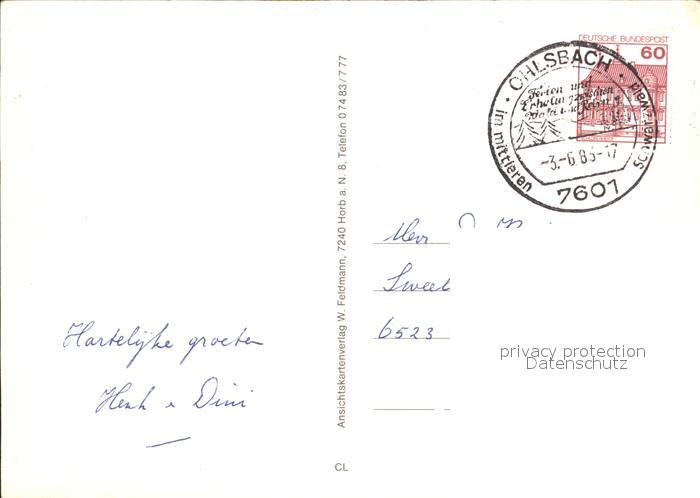 DEUTSCHE BUNDESPOST
60
OHLSBACH
im mittleren Schwarzwald
Ferien und
Erholung zwischen
Wald und Reben
-3.-6.83-17
7601
Herr
Sweel
6523
privacy protection
Datenschutz
Hartelijke groeten
Henk & Dini
Ansichtskartenverlag W. Feldmann, 7240 Horb a. N. 8, Telefon 0 74 83 / 7 77
CL